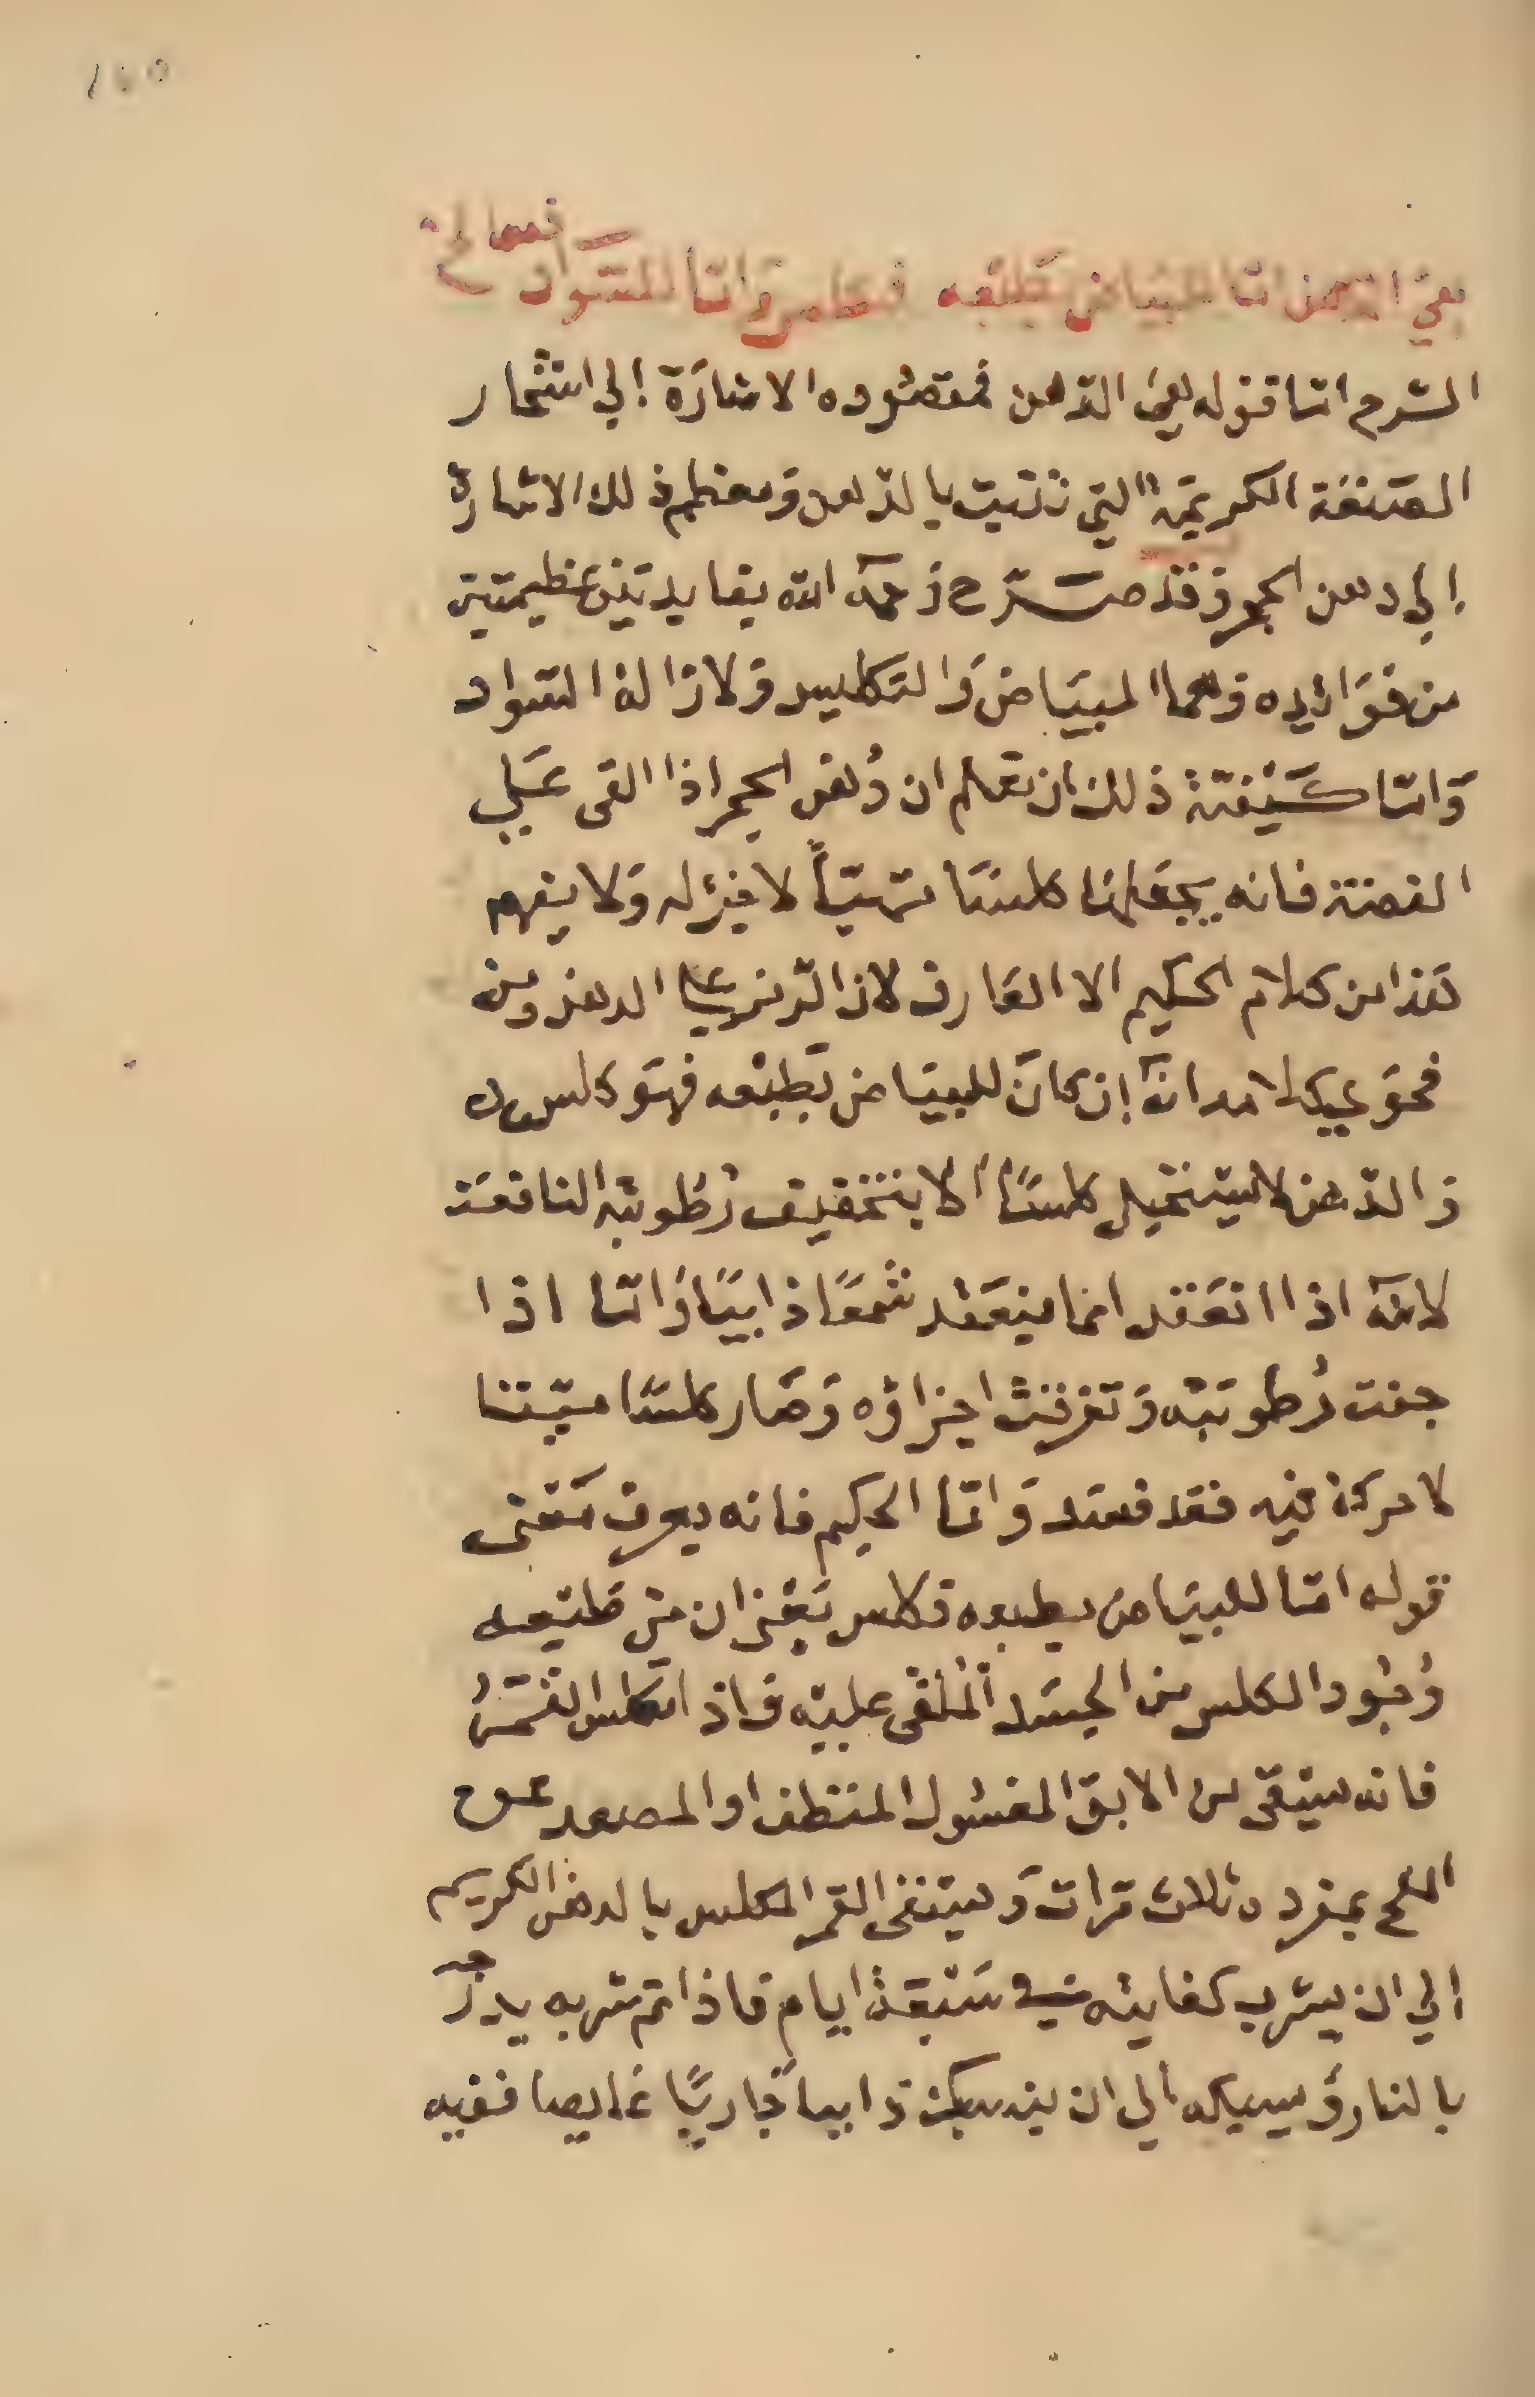 ١٤٥
بقي الدهن اما للبياض بطبعه فكلس واما للسواد فصالح
الشرح اما قوله بقي الدهن فمقصوده الاشارة إلي استثمار
الصنعة الكريمة التي زتيت بالدهن ومعظم ذلك الاشارة
إلي دهن الحجر وقد صرح رحمه الله بفايدتين عظيمتين
من فوايده وهما البياض والتكليس ولازالة السواد
واما كيفية ذلك ان تعلم ان دهن الحجر اذا القى علي
الفضة فانه يجعلها كلسا مهيأ لا خير له ولا يفهم
هذا من كلام الحكيم الا العارف لان الرمز علي الدهن ومن
فحوي كلامه انه إن كان للبياض بطبعه فهو كلس
والدهن لا يستحيل كلسا الا بتخفيف رطوبته النافعة
لانه اذا انعقد انما ينعقد شمعا ذايبا واما اذا
جفت رطوبته وتفرقت اجزاؤه وصار كلسا ميتا
لا حركة فيه فقد فسد واما الحكيم فانه يعرف معنى
قوله اما للبياض بطبعه فكلس يعني ان من طبعه
وجود الكلس من الجسد الملقى عليه فاذا كلس القمر
فانه يسقى من الابق المغسول المنظف او المصعد عن
الملح بمفرده ثلاث مرات ويسقى القمر المكلس بالدهن الكريم
إلي ان يشرب كفايته في سبعة ايام فاذا تم شربه يدرج
بالنار ويسبكه الي ان ينسبك ذايبا جاريا غايصا ففيه